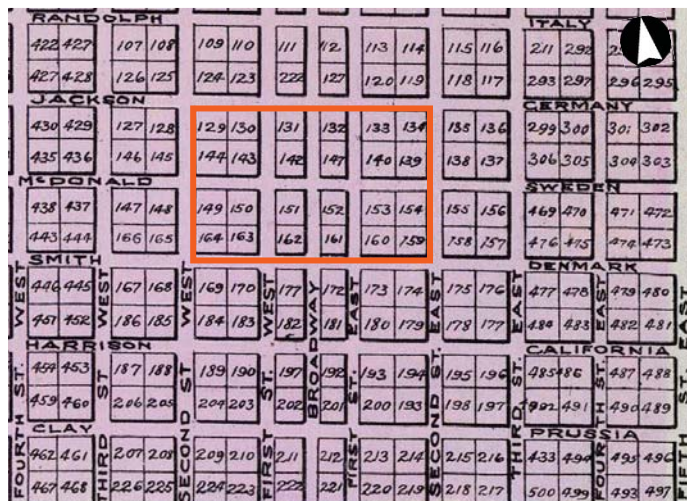 RANDOLPH ITALY
422 427 107 108 109 110 111 112 113 114 115 116 211 292
427 428 126 125 124 123 222 127 120 119 118 117 293 297 296 295
JACKSON GERMANY
430 429 127 128 129 130 131 132 133 134 135 136 299 300 301 302
435 436 146 145 144 143 142 147 140 139 138 137 306 305 304 303
McDONALD SWEDEN
438 437 147 148 149 150 151 152 153 154 155 156 469 470 471 472
443 444 166 165 164 163 162 161 160 159 158 157 476 475 474 473
SMITH DENMARK
446 445 167 168 169 170 177 172 173 174 175 176 477 478 479 480
451 452 186 185 184 183 182 181 180 179 178 177 484 483 482 481
HARRISON CALIFORNIA
454 453 187 188 189 190 197 192 193 194 195 196 485 486 487 488
459 460 206 205 204 203 202 201 200 193 198 197 492 491 490 489
CLAY PRUSSIA
462 461 207 208 209 210 211 212 213 214 215 216 433 494 495 496
467 468 226 225 224 223 222 221 220 219 218 217 500 499 493 497
WEST FOURTH ST.
WEST THIRD ST
WEST SECOND ST
WEST FIRST ST.
BROADWAY
EAST FIRST ST.
EAST SECOND ST.
EAST THIRD ST.
EAST FOURTH ST.
EAST FIFTH